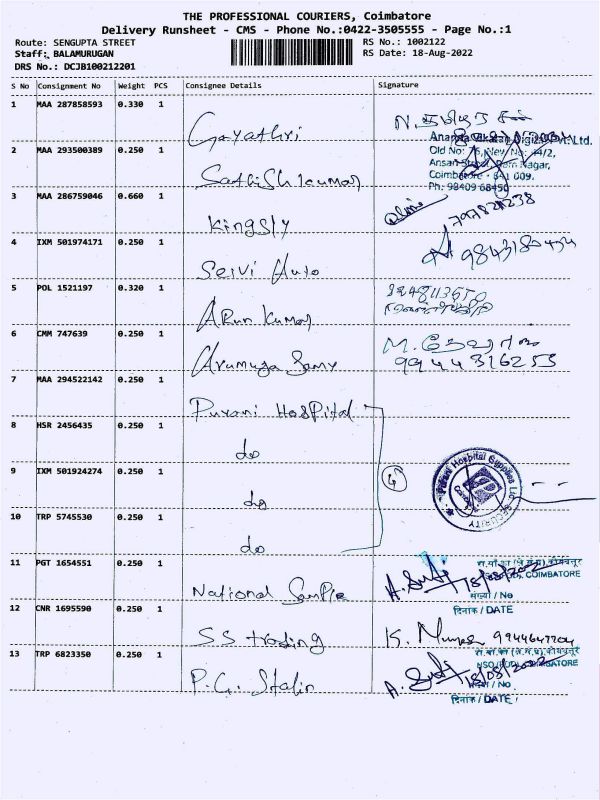 THE PROFESSIONAL COURIERS, Coimbatore
Delivery Runsheet - CMS - Phone No.:0422-3505555 - Page No.:1
Route: SENGUPTA STREET
Staff: BALAMURUGAN
DRS No.: DCJB100212201
RS No.: 1002122
RS Date: 18-Aug-2022
S No Consignment No Weight PCS Consignee Details Signature
1 MAA 287858593 0.330 1 Gayathri
2 MAA 293500389 0.250 1 Sathish kumar
Old No:
Ansari Street, Ram Nagar,
Coimbatore - 641 009.
Ph: 98409 68450
3 MAA 286759046 0.660 1 Kingsly
4 IXM 501974171 0.250 1 Selvi Auto
5 POL 1521197 0.320 1 Arun Kumar
6 CMM 747639 0.250 1 Arumuga Samy 9944316255
7 MAA 294522142 0.250 1 Purani Hospital
8 HSR 2456435 0.250 1 do
9 IXM 501924274 0.250 1 do
4
Purani Hospital Supplies Ltd SECURITY
10 TRP 5745530 0.250 1 do
11 PGT 1654551 0.250 1 National Sample
18/08/2022
COIMBATORE
संख्या / No
दिनांक / DATE
12 CNR 1695590 0.250 1 SS trading
13 TRP 6823350 0.250 1 P.G. Stalin
18/08/2022
COIMBATORE
संख्या / No
दिनांक / DATE